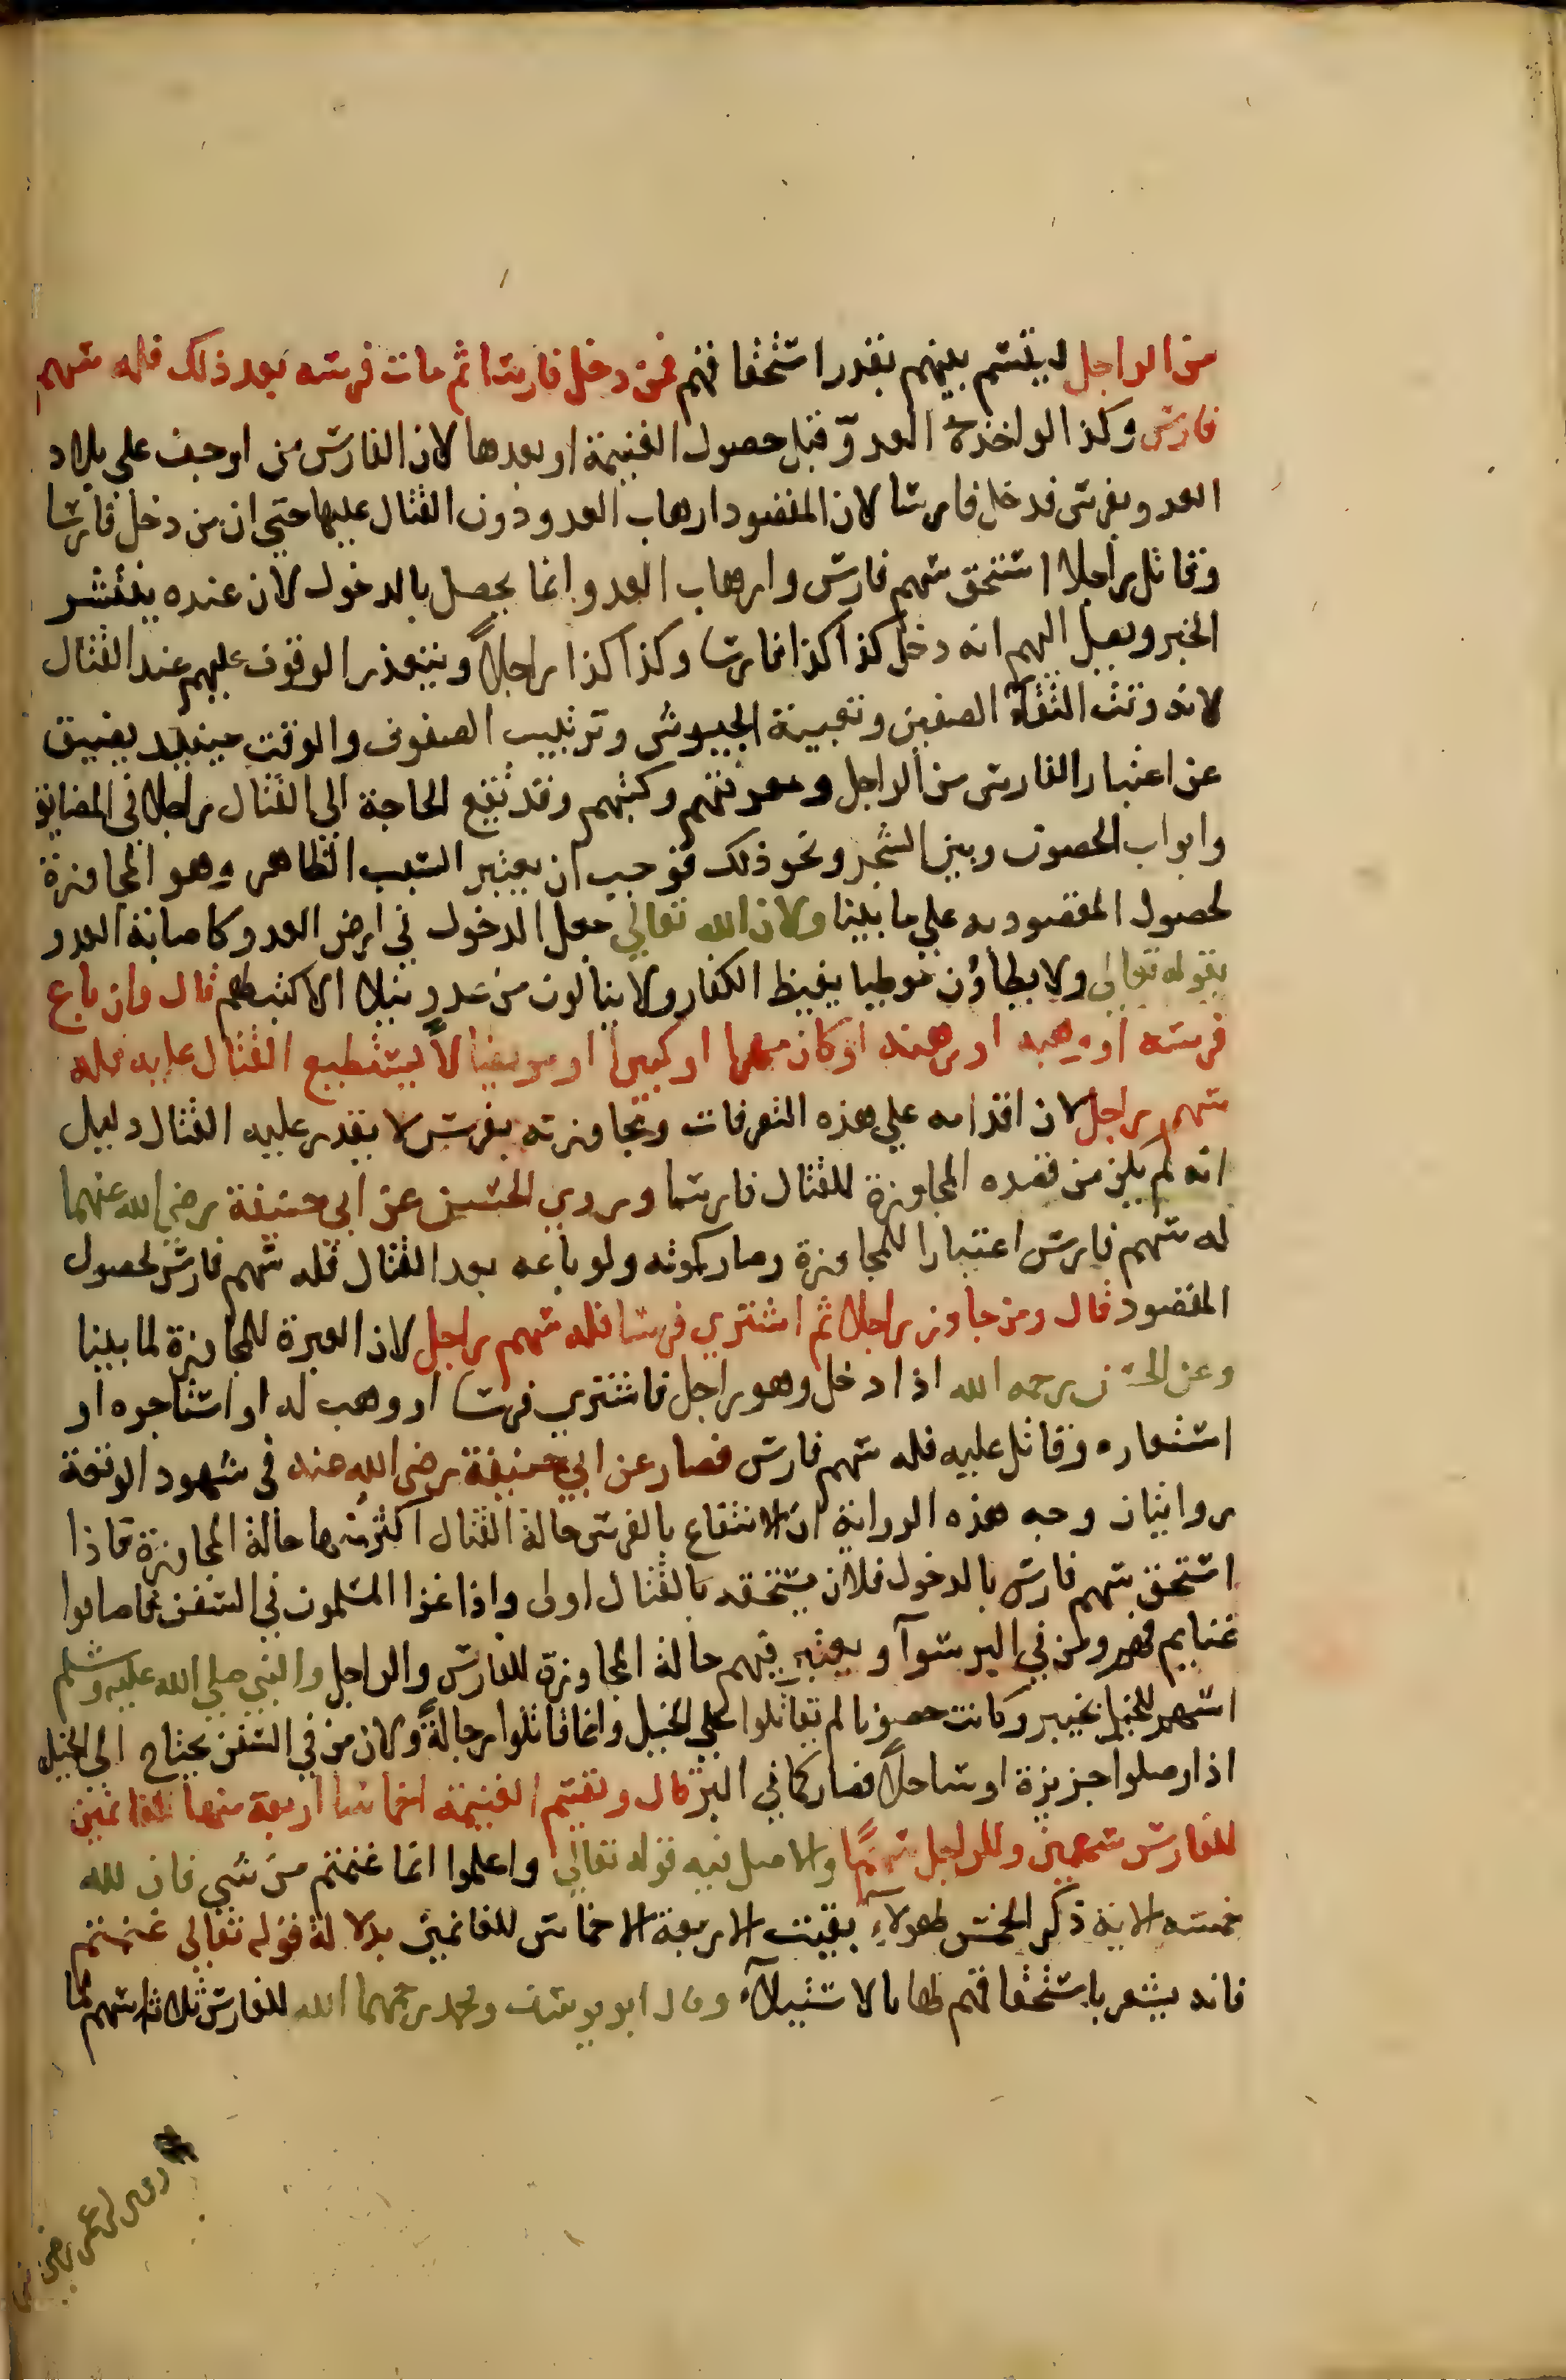 من الراجل ليقسم بينهم بقدر استحقاقهم فمن دخل فارسا ثم مات فرسه بعد ذلك فله سهم
فارس وكذا لو اخذه العدو قبل حصول الغنيمة او بعدها لان الفارس من اوجف على بلاد
العدو بفرس فدخل فارسا لان المقصود ارهاب العدو دون القتال عليها حتى ان من دخل فارسا
وقاتل راجلا استحق سهم فارس وارهاب العدو انما يحصل بالدخول لان عنده ينتشر
الخبر ويصل اليهم انه دخل كذا كذا فارسا وكذا كذا راجلاً ويتعذر الوقوف عليهم عند القتال
لانه وقت التقاء الصفين وتعبية الجيوش وترتيب الصفوف والوقت حينئذ يضيق
عن اعتبار الفارس من الراجل ومعرفتهم وكتبهم وقد تقع الحاجة الى القتال راجلا في المضايق
وابواب الحصون وبين الشجر ونحو ذلك فوجب ان يعتبر السبب الظاهر وهو المجاوزة
لحصول المقصود به على ما بينا ولان الله تعالى جعل الدخول في ارض العدو كاصابة العدو
بقوله تعالى ولا يطأون موطيا يغيظ الكفار ولا ينالون من عدو نيلا الا كتب لهم قال وان باع
فرسه او وهبه او رهنه او كان مهرا او كبيرا او مريضا لا يستطيع القتال عليه فله
سهم راجل لان اقدامه على هذه التصرفات ومجاوزته بفرس لا يقدر عليه القتال دليل
انه لم يكن من قصده المجاوزة للقتال فارسا وروى الحسن عن ابي حنيفة رضي الله عنهما
له سهم فارس اعتبارا للمجاوزة وصار كموته ولو باعه بعد القتال فله سهم فارس لحصول
المقصود قال ومن جاوز راجلا ثم اشترى فرسا فله سهم راجل لان العبرة للمجاوزة لما بينا
وعن الحسن رحمه الله اذا دخل وهو راجل فاشترى فرسا او وهب له او استاجره او
استعاره وقاتل عليه فله سهم فارس فصار عن ابي حنيفة رضي الله عنه في شهود الوقعة
روايتان وجه هذه الرواية ان الانتفاع بالفرس حالة القتال اكثر منها حالة المجاوزة فاذا
استحق سهم فارس بالدخول فلان يستحقه بالقتال اولى واذا غزا المسلمون في السفن فاصابوا
غنايم فهم ومن في البر سواء ويعتبر فيهم حالة المجاوزة للفارس والراجل والنبي صلى الله عليه وسلم
اسهم للخيل بخيبر وكانت حصونا لم يقاتلوا على الخيل وانما قاتلوا رجالةً ولان من في السفن يحتاج الى الخيل
اذا وصلوا جزيرة او ساحلاً فصار كما في البر قال وتقسم الغنيمة اخماسا اربعة منها للغانمين
للفارس سهمين وللراجل سهمًا والاصل فيه قوله تعالى واعلموا انما غنمتم من شي فان لله
خمسه الاية ذكر الخمس لهولاء بقيت الاربعة الاخماس للغانمين بدلالة قوله تعالى غنمتم
فانه يشعر باستحقاقهم لها بالاستيلاء وقال ابو يوسف ومحمد رحمهما الله للفارس ثلاثة اسهم لما